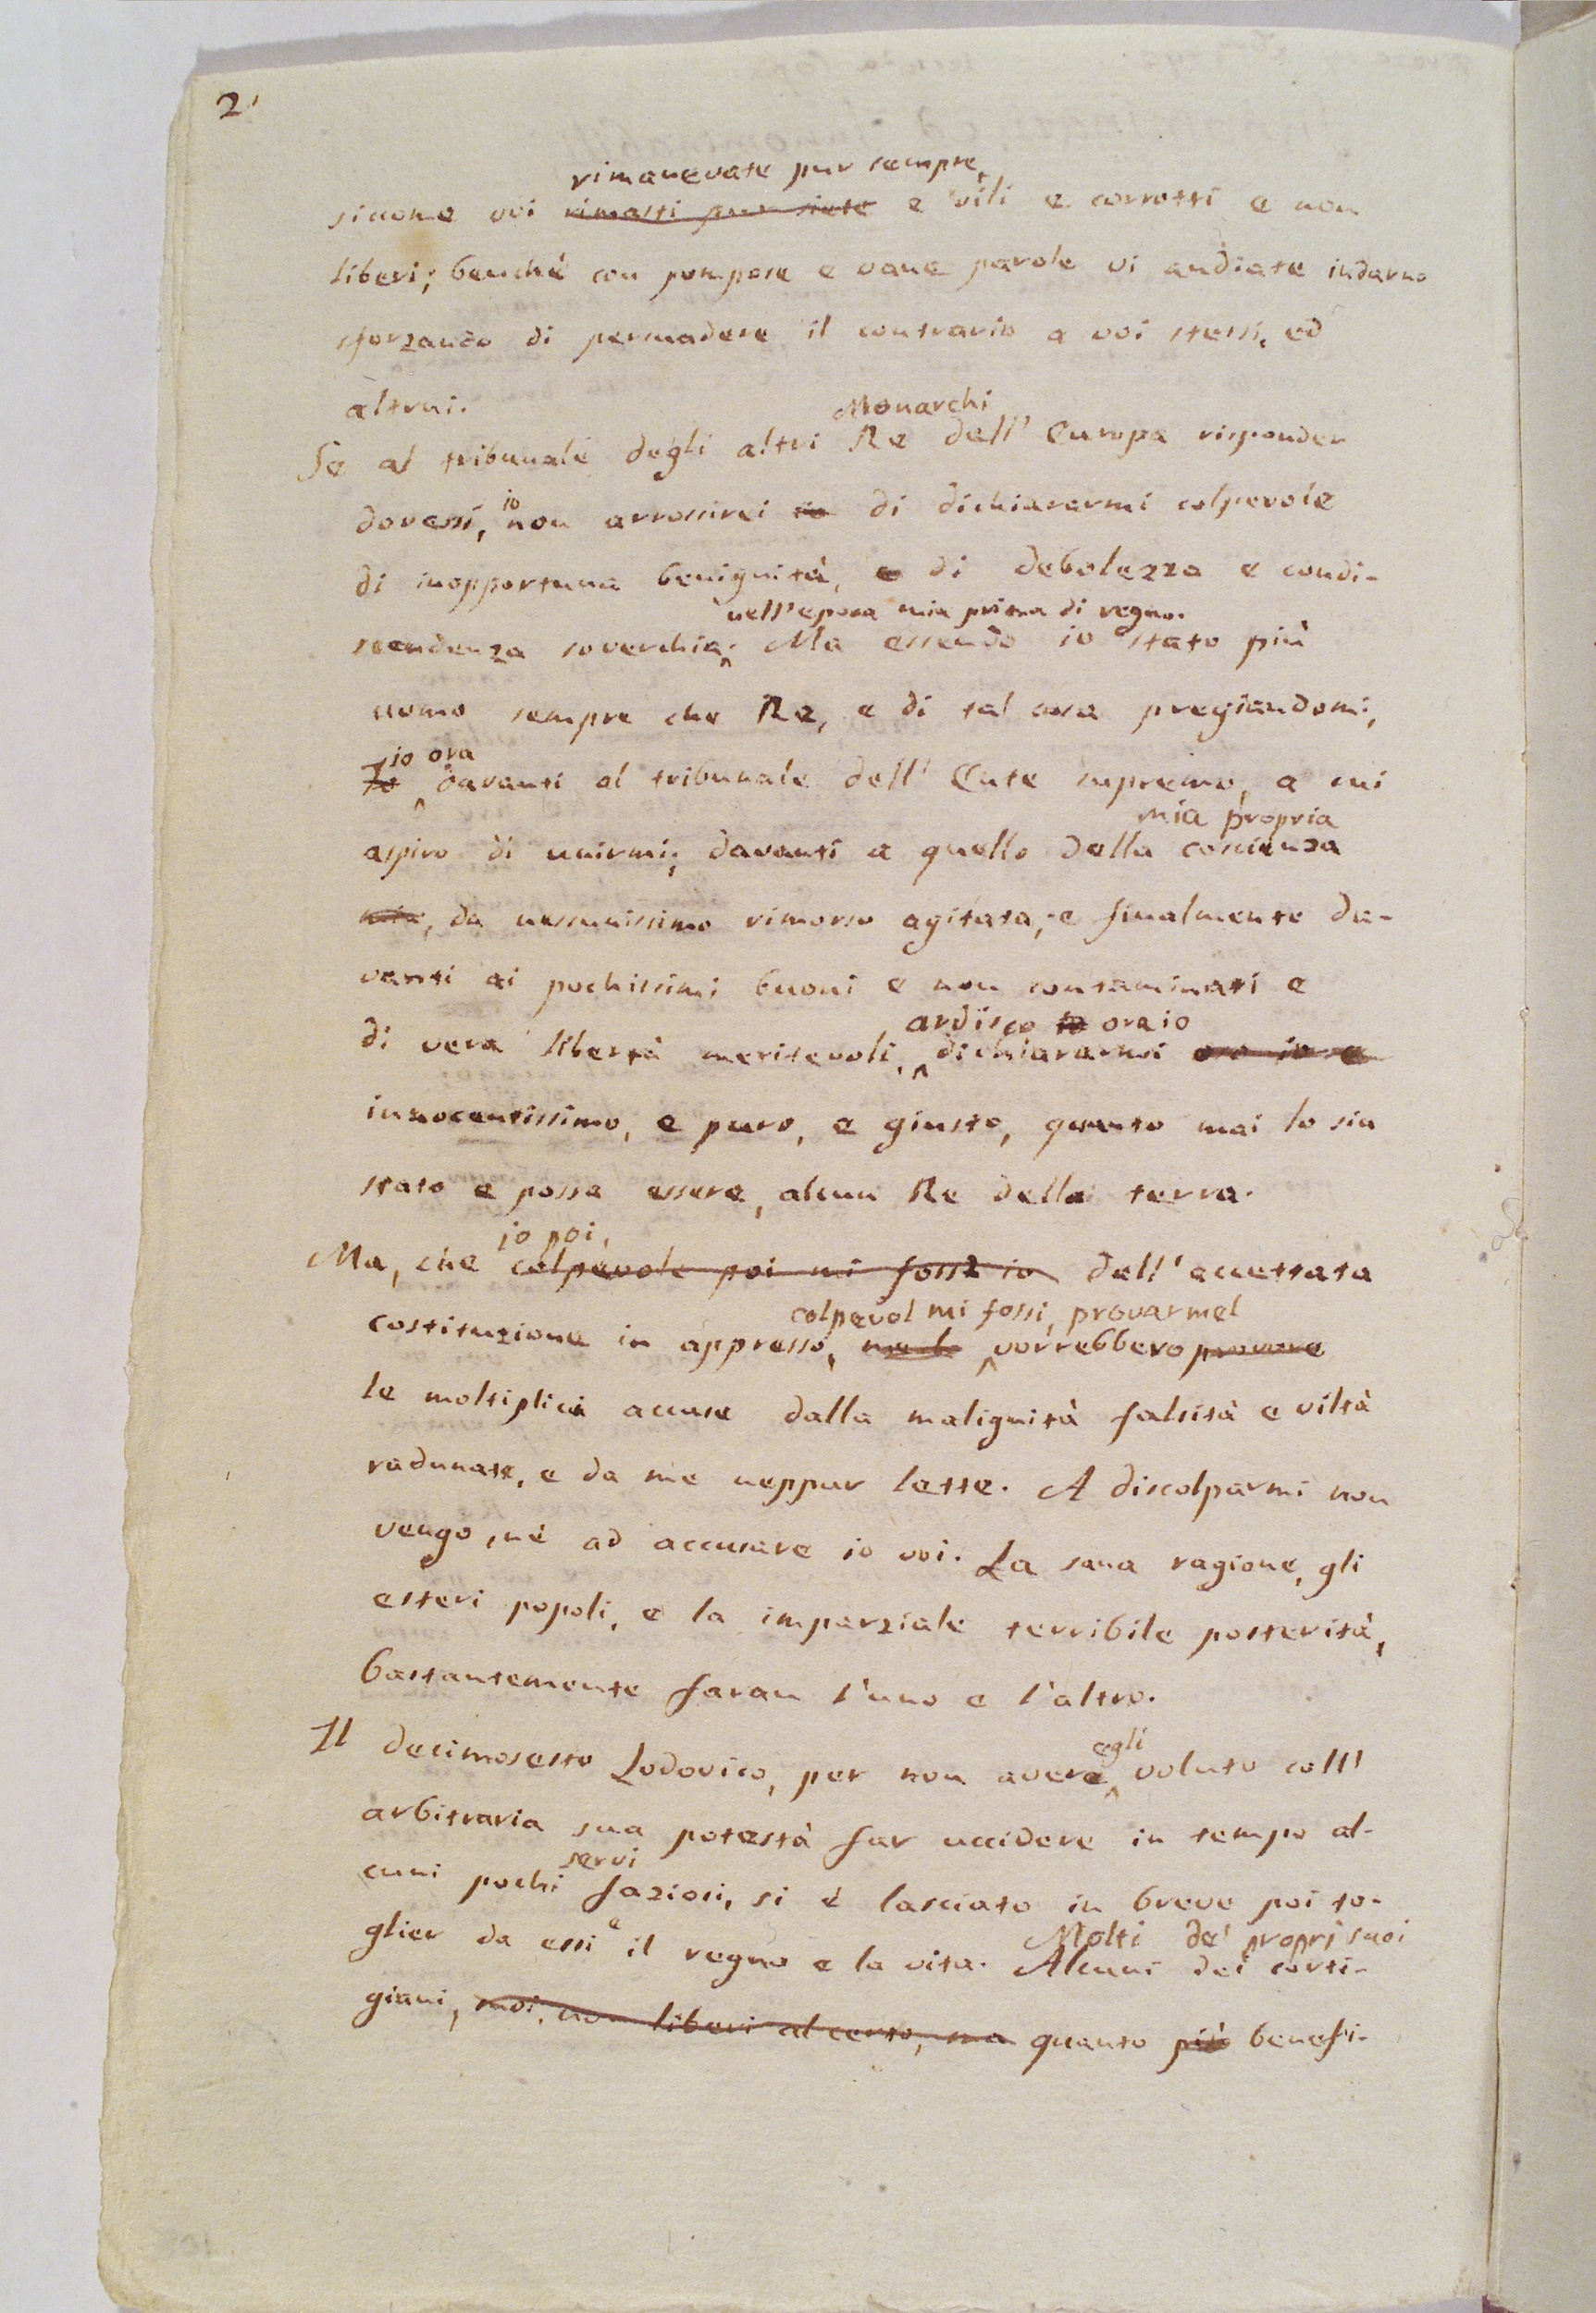 2.
rimanevate pur sempre,
siccome voi rimasti pur siete e vili e corrotti e non
liberi; benchè con pompose e vane parole vi andiate indarno
sforzando di persuadere il contrario a voi stessi, ed
altrui.
Monarchi
Se al tribunale degli altri Re dell' Europa risponder
io
dovessi, non arrossirei io di dichiararmi colpevole
di inopportuna benignità, e di debolezza e condi-
nell'epoca mia prima di regno.
scendenza soverchia; Ma essendo io stato più
uomo sempre che Re, e di tal cosa pregiandomi,
io ora
Io davanti al tribunale dell' Ente supremo, a cui
mia propria
aspiro di unirmi; davanti a quello della coscienza
mia, da nessunissimo rimorso agitata; e finalmente da-
vanti ai pochissimi buoni e non contaminati e
ardisco io ora io
di vera libertà meritevoli, dichiararmi ora io e
innocentissimo, e puro, e giusto, quanto mai lo sia
stato e possa essere, alcun Re della terra.
io poi,
Ma, che colpevole poi mi fossi io dell' accettata
colpevol mi fossi, provarmel
costituzione in appresso, me lo vorrebbero provare
le moltiplici accuse dalla malignità falsità e viltà
radunate, e da me neppur lette. A discolparmi non
vengo, nè ad accusare io voi. La sana ragione, gli
esteri popoli, e la imparziale terribile posterità,
bastantemente faran l'uno e l'altro.
egli
Il decimosesto Lodovico, per non avere voluto coll'
arbitraria sua potestà far uccidere in tempo al-
servi
cuni pochi faziosi, si è lasciato in breve poi to-
e Molti de' propri suoi
glier da essi il regno e la vita. Alcuni dei corti-
giani, non liberi al certo, ma quanto più benefi-